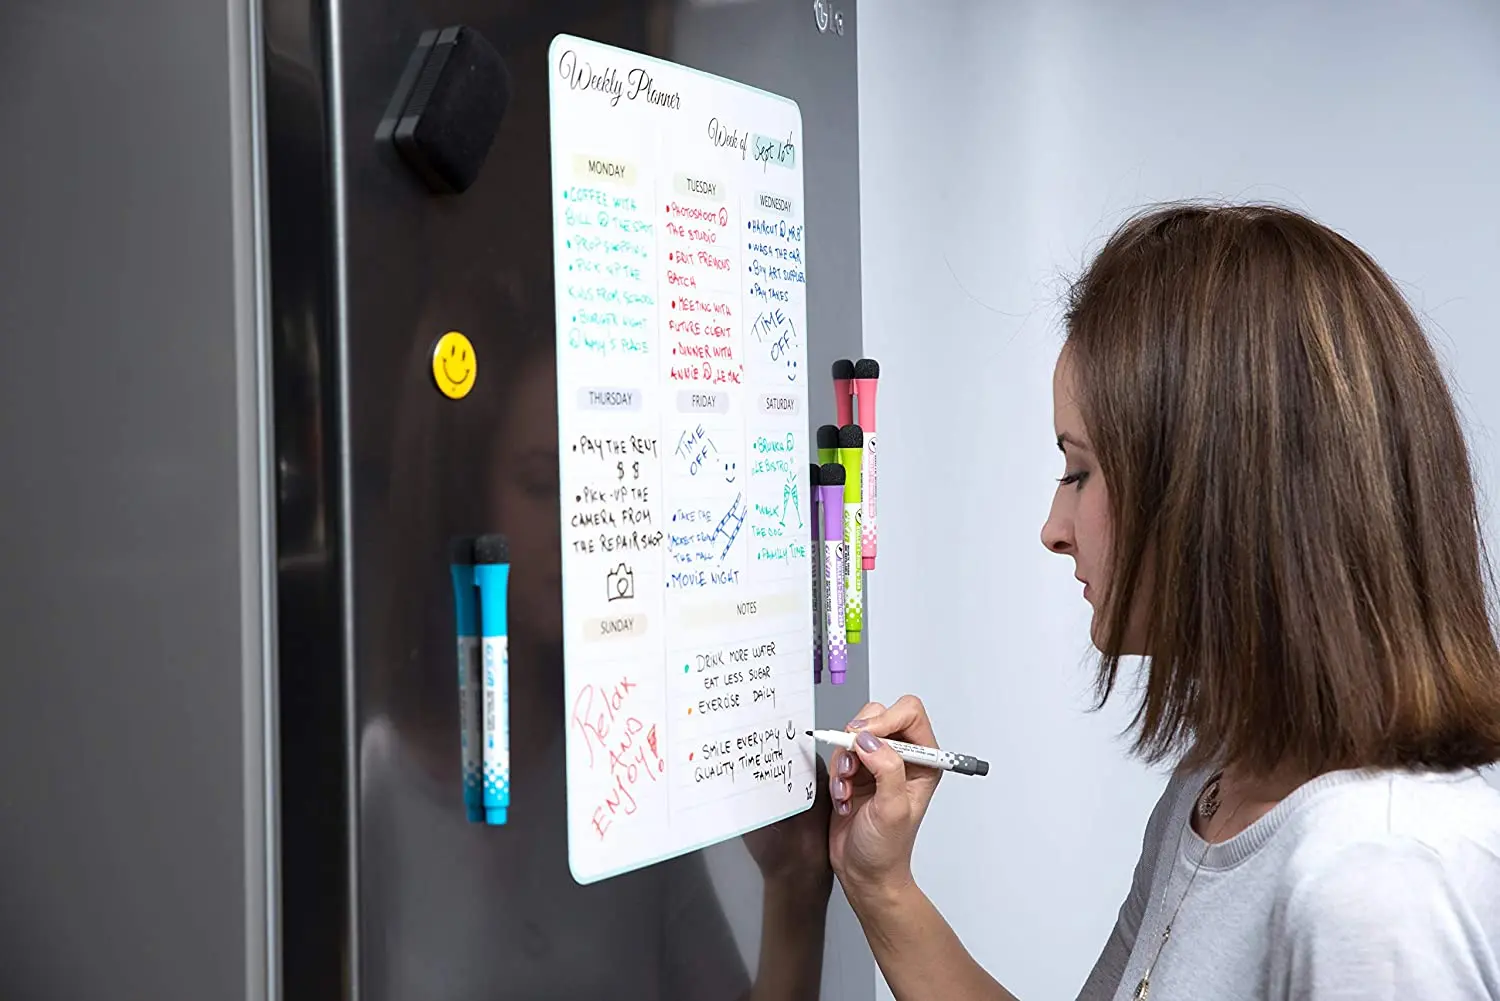 LG
Weekly Planner
Week of Sept 10th
MONDAY
• COFFEE WITH
BILL @ THE SPOT
• PROP SHOPPING
• PICK UP THE
KIDS FROM SCHOOL
• BURGER NIGHT
@ ANDY'S PLACE
TUESDAY
• PHOTOSHOOT @
THE STUDIO
• EDIT PREVIOUS
BATCH
• MEETING WITH
FUTURE CLIENT
• DINNER WITH
ANNIE @ „LE MAC"
WEDNESDAY
• HAIRCUT @ „MR B"
• WASH THE CAR
• BUY ART SUPPLIES
• PAY TAXES
TIME
OFF!
THURSDAY
• PAY THE RENT
$ $
• PICK-UP THE
CAMERA FROM
THE REPAIR SHOP
FRIDAY
TIME
OFF!
• TAKE THE
JACKET FROM
THE MALL
• MOVIE NIGHT
SATURDAY
• BRUNCH @
„LE BISTRO"
• WALK
THE DOG
• FAMILY TIME
SUNDAY
Relax
AND
ENJOY!
NOTES
• DRINK MORE WATER
EAT LESS SUGAR
• EXERCISE DAILY
• SMILE EVERYDAY
QUALITY TIME WITH
FAMILLY!